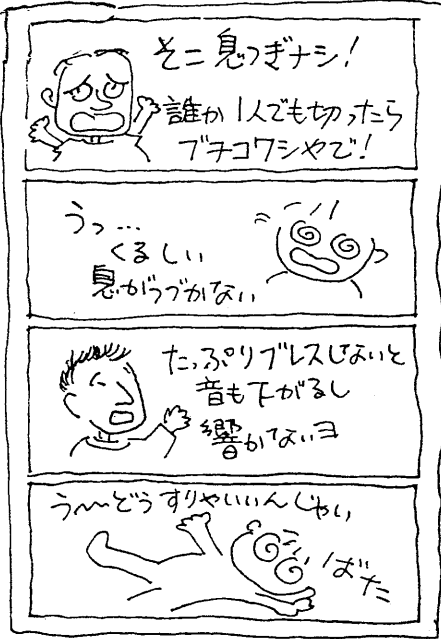 そこ息つぎナシ!
誰か1人でも切ったら
ブチコワシやで!
うっ…
くるしい
息がつづかない
たっぷりブレスしないと
音も下がるし
響かないヨ
う〜どうすりゃいいんじゃい
ばた